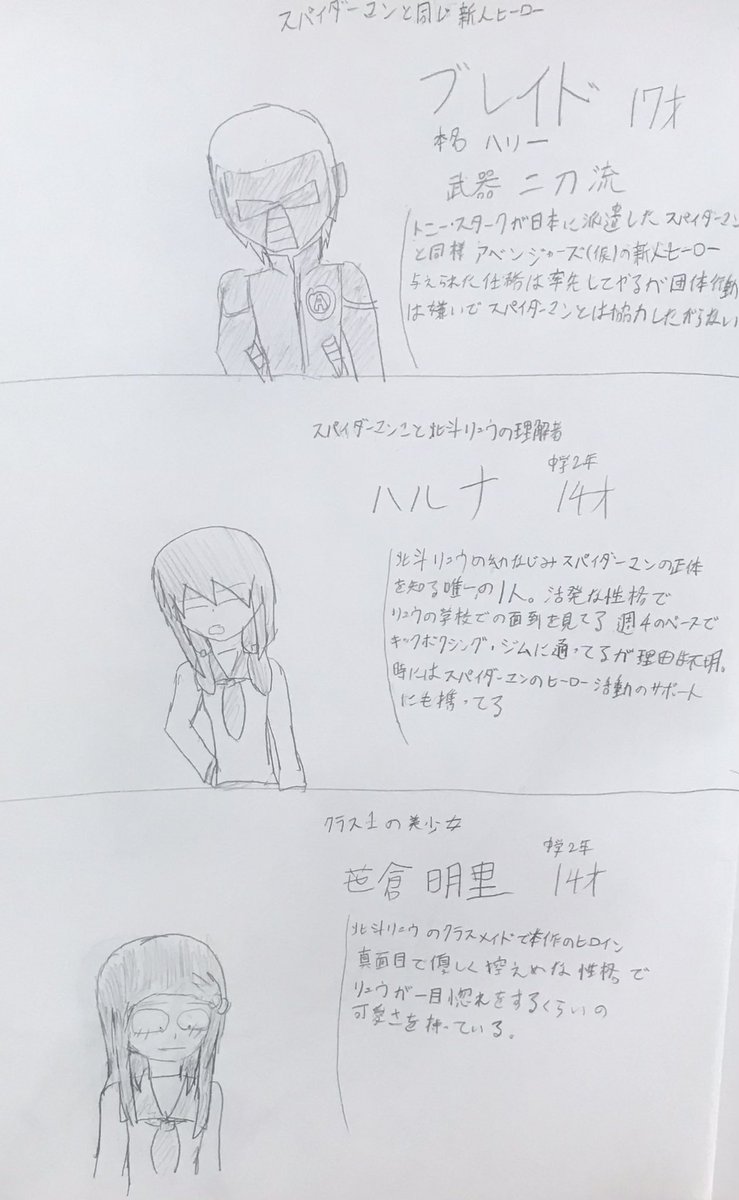 スパイダーマンと同じ新人ヒーロー
ブレイド 17才
本名 ハリー
武器 二刀流
トニー・スタークが日本に派遣したスパイダーマン
と同様 アベンジャーズ(仮)の新人ヒーロー
与えられた任務は率先してやるが団体行動
は嫌いでスパイダーマンとは協力したがらない
A
スパイダーマンこと北斗リュウの理解者
中学2年
ハルナ 14才
北斗リュウの幼なじみスパイダーマンの正体
を知る唯一の1人。活発な性格で
リュウの学校での面倒を見てる 週4のペースで
キックボクシング・ジムに通ってるが理由は不明。
時にはスパイダーマンのヒーロー活動のサポート
にも携ってる
クラス1の美少女
中学2年
笹倉 明里 14才
北斗リュウのクラスメイドで本作のヒロイン
真面目で優しく控えめな性格で
リュウが一目惚れをするくらいの
可愛さを持っている。